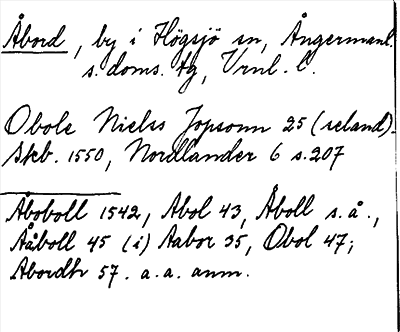 Åbord, by i Högsjö sn, Ångermanl.
s. doms. tg, Vrnl. l.
Obole Nielss Jopsonn 25 (seland).
Skb. 1550, Nordlander 6 s. 207
Åboboll 1542, Abol 43, Åboll s. å.,
Aåboll 45 (i) Aabor 35, Obol 47;
Abordh 57. a. a. anm.